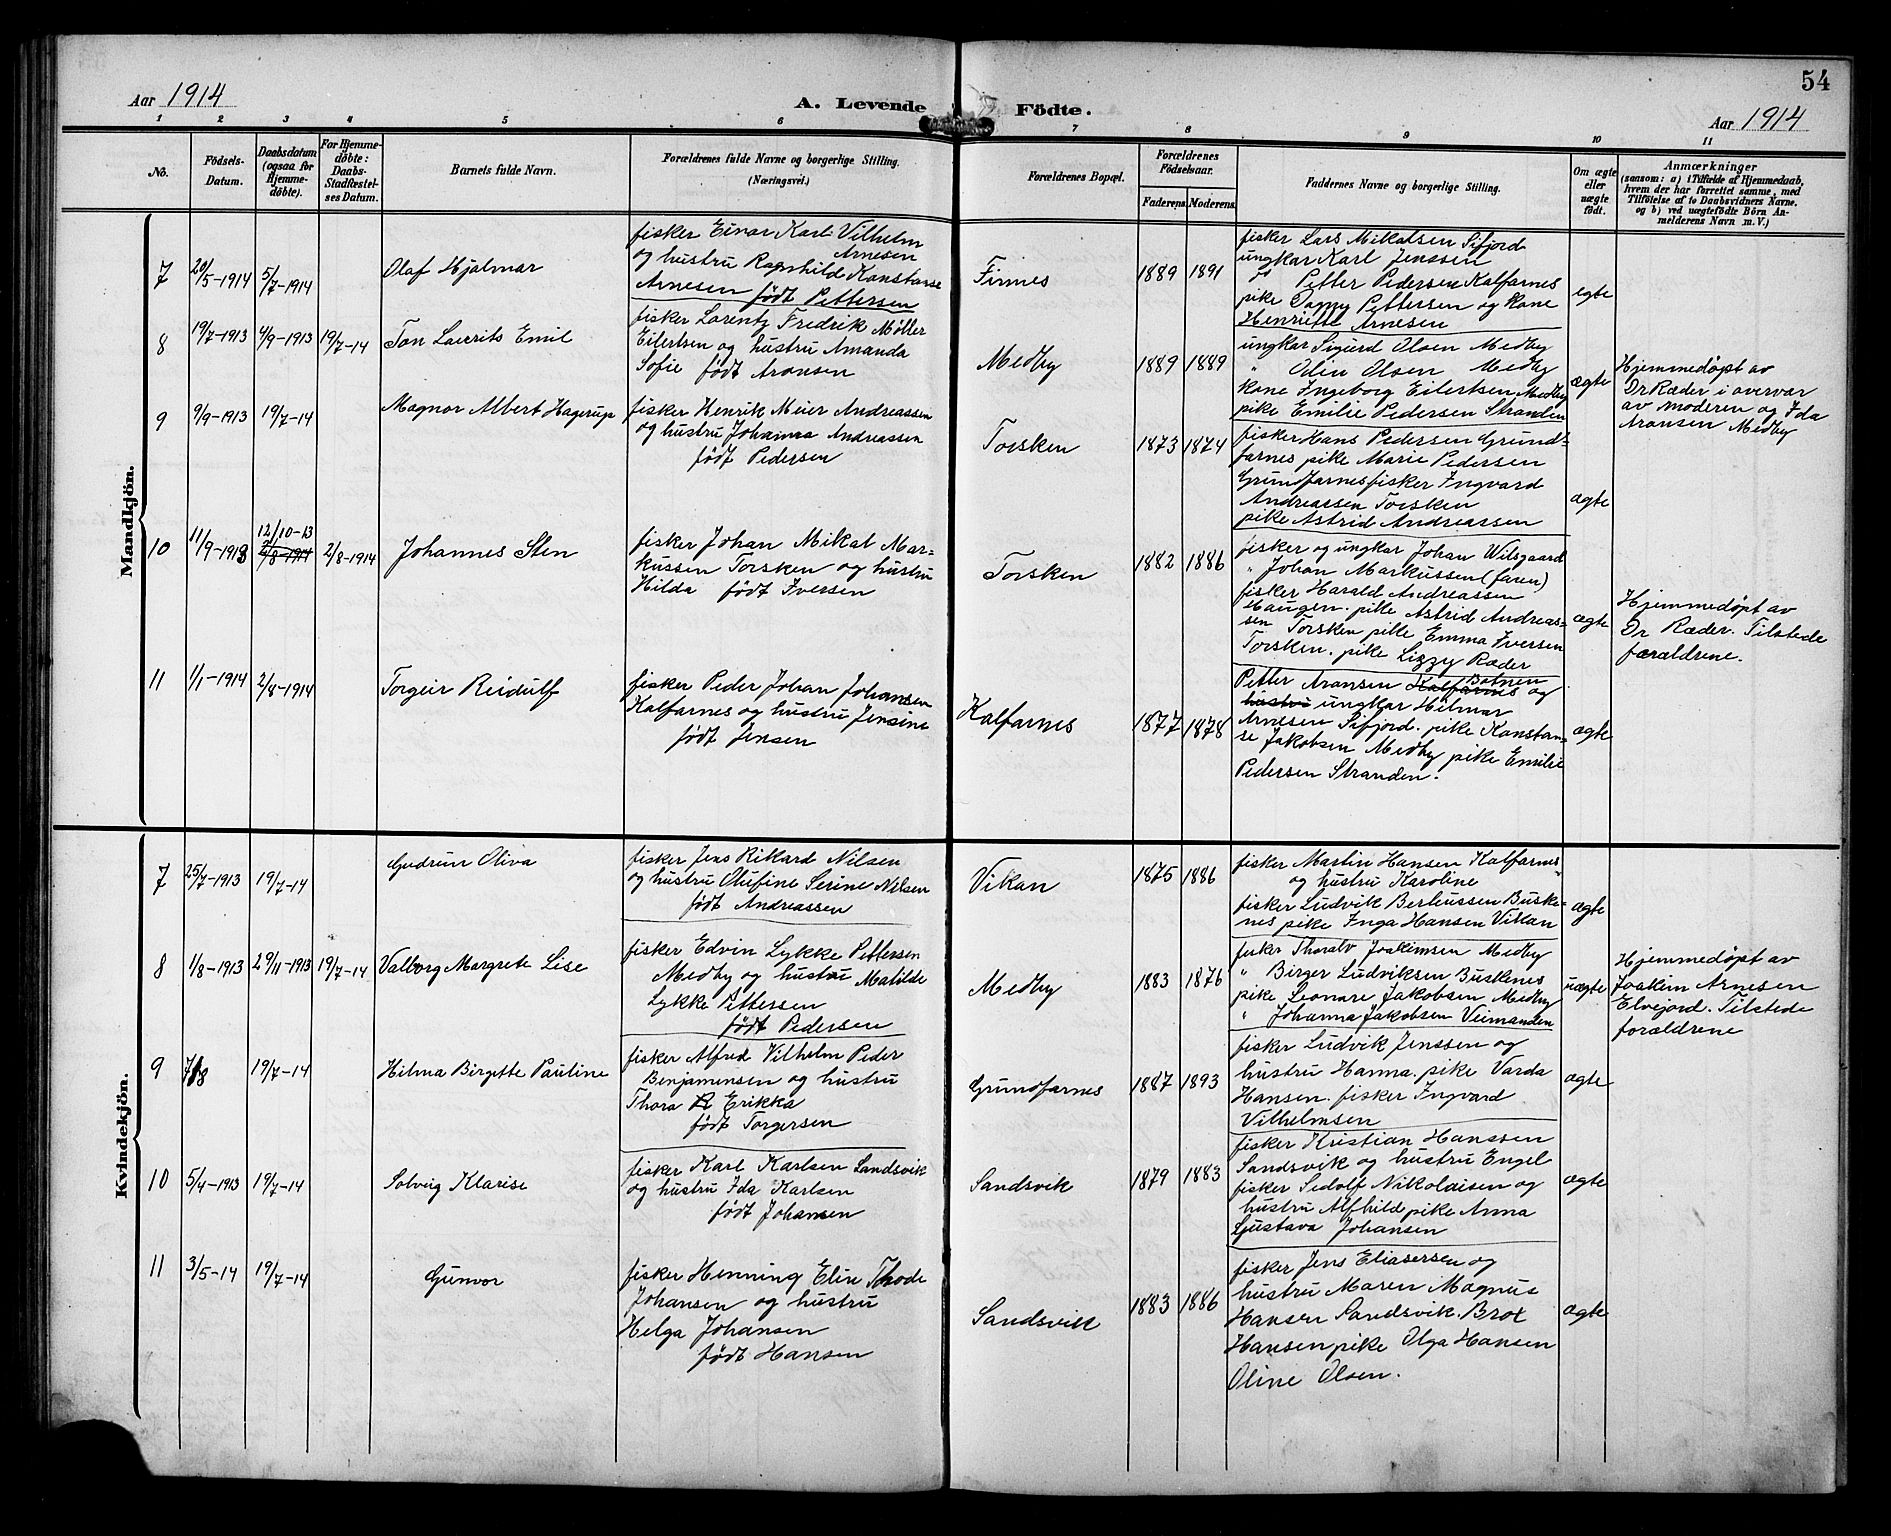 54
Aar 1914
A. Levende Födte.
Aar 1914
1 2 3 4 5 6 7 8 9 10 11
No.
Födsels-
Datum.
Daabsdatum
(ogsaa for
Hjemme-
döbte).
For Hjemme-
döbte:
Daabs-
Stadfæstel-
ses Datum.
Barnets fulde Navn.
Forældrenes fulde Navne og borgerlige Stilling.
(Næringsvei.)
Forældrenes Bopæl.
Forældrenes
Födselsaar.
Faderens. Moderens.
Faddernes Navne og borgerlige Stilling.
Om ægte
eller
uægte
født.
Anmærkninger
(saasom: a) i Tilfælde af Hjemmedaab,
hvem der har forrettet samme, med
Tilföielse af to Daabsvidners Navne.
og b) ved uægtefödte Börn An-
melderens Navn m. V.)
Mandkjön.
7
20/5-1914
5/7-1914
Olaf Hjalmar
fisker Einar Karl Vilhelm
Arnesen
og hustru Ragnhild Konstanse
Arnesen født Pettersen
Finnes
1889 1891
fisker Lars Mikalsen Sifjord
ungkar Karl Jenssen
" Petter Pedersen Kalfarnes
pike Dagny Pettersen og kone
Henriette Arnesen
egte
8
19/7-1913
4/9-1913
19/7-14
Ton Laurits Emil
fisker Lorentz Fredrik Møller
Eilertsen og hustru Amanda
Sofie født Aronsen
Medby
1889 1889
ungkar Sigurd Olsen Medby
" Odin Olsen Medby
kone Ingeborg Eilertsen Medby
pike Emilie Pedersen Stranden
ægte
Hjemmedøpt av
Dr Ræder i overvær
av moderen og Ida
Aronsen Medby
9
9/9-1913
19/7-14
Magnor Albert Hagerup
fisker Henrik Meier Andreassen
og hustru Johanna Andreassen
født Pedersen
Torsken
1873 1874
fisker Hans Pedersen Grund-
farnes pike Marie Pedersen
Grundfarnes fisker Ingvard
Andreassen Torsken
pike Astrid Andreassen
ægte
10
11/9-1913
12/10-13
2/8-1914
2/8-1914
Johannes Sten
fisker Johan Mikal Mar-
kussen Torsken og hustru
Hilda født Iversen
Torsken
1882 1886
fisker og ungkar Johan Wilsgaard
" Johan Markussen (faren)
fisker Harald Andreassen
Haugen. pike Astrid Andreas-
sen Torsken pike Emma Iversen
Torsken. pike Lizzy Ræder
ægte
Hjemmedøpt av
Dr Ræder. Tilstede
forældrene.
11
1/1-1914
2/8-1914
Torgeir Reidulf
fisker Peder Johan Johansen
Kalfarnes og hustru Jensine
født Jensen
Kalfarnes
1877 1878
Petter Aronsen Kalfarnes Botnen og
hustru ungkar Hilmar
Arnesen Sifjord. pike Konstan-
se Jakobsen Medby pike Emilie
Pedersen Stranden.
ægte
Kvindekjön.
7
25/7-1913
19/7-14
Gudrun Oliva
fisker Jens Rikard Nilsen
og hustru Olufine Serine Nilsen
født Andreassen
Vikan
1875 1886
fisker Martin Hansen Kalfarnes
og hustru Karoline "
fisker Ludvik Berteussen Buske-
nes pike Inga Hansen Vikan
ægte
8
1/8-1913
29/11-1913
19/7-14
Valborg Margrete Lise
fisker Edvin Lykke Pettersen
Medby og hustru Matilde
Lykke Pettersen
født Pedersen
Medby
1883 1876
fisker Thoralv Joakimsen Medby
" Birger Ludviksen Buskenes
pike Leonare Jakobsen Medby
" Johanna Jakobsen Veimanden
uægte
Hjemmedøpt av
Joakim Arnesen
Elvejord. Tilstede
forældrene
9
19/7-14
Hilma Birgitte Pauline
fisker Alfred Vilhelm Peder
Benjaminsen og hustru
Thora Erikka
født Torgersen
Grundfarnes
1887 1893
fisker Ludvik Jenssen og
hustru Hanna. pike Varda
Hansen. fisker Ingvard
Vilhelmsen
ægte
10
5/4-1913
19/7-14
Solveig Klarise
fisker Karl Karlsen Sandsvik
og hustru Ida Karlsen
født Johansen
Sandsvik
1879 1883
fisker Kristian Hanssen
Sandsvik og hustru Engel
fisker Sedolf Nikolaisen og
hustru Alfhild pike Anna
Gustava Johansen
ægte
11
3/5-14
19/7-14
Gunvor
fisker Henning Elin Thode
Johansen og hustru
Helga Johansen
født Hansen
Sandsvik
1883 1886
fisker Jens Eliasersen og
hustru Maren Magnus
Hansen Sandsvik. Brox
Hansen pike Olga Hansen
Oline Olsen.
ægte